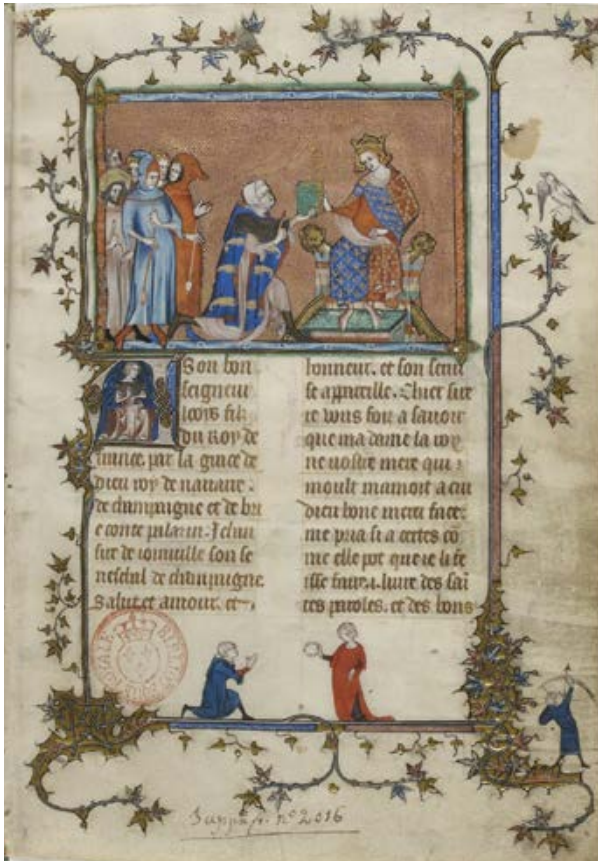 I
A Son bon
seigneur
looys filz
du Roy de
france. par la grace de
dieu roy de nauarre.
de champaigne et de bri
e conte palazin. Jehan
sire de ioinuille son se
neschal de champaigne
salut et amour. et
honneur. et son serui
se appareille. Chier sire
ie vous foiz a sauoir
que ma dame la roy
ne vostre mere qui
moult mamoit a cui
dieu bone merci face.
me pria si a certes cõ
me elle pot que ie li fe
isse faire .i. liure des saĩ
tes paroles. et des bons
ROYALE
Supp. fr. n° 2016